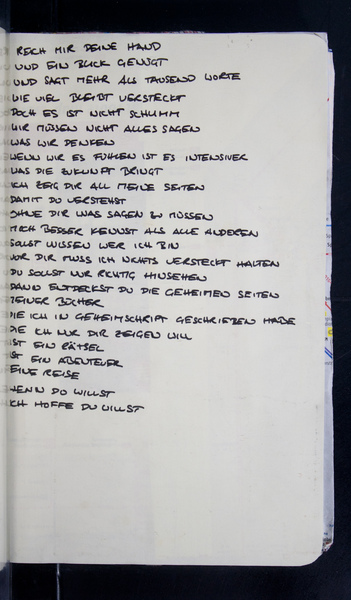 REICH MIR DEINE HAND
UND EIN BLICK GENÜGT
UND SAGT MEHR ALS TAUSEND WORTE
WIE VIEL BLEIBT VERSTECKT
DOCH ES IST NICHT SCHLIMM
WIR MÜSSEN NICHT ALLES SAGEN
WAS WIR DENKEN
WENN WIR ES FÜHLEN IST ES INTENSIVER
WAS DIE ZUKUNFT BRINGT
ICH ZEIG DIR ALL MEINE SEITEN
DAMIT DU VERSTEHST
OHNE DIR WAS SAGEN ZU MÜSSEN
MICH BESSER KENNST ALS ALLE ANDEREN
SOLLST WISSEN WER ICH BIN
VOR DIR MUSS ICH NICHTS VERSTECKT HALTEN
DU SOLLST NUR RICHTIG HINSEHEN
DANN ENTDECKST DU DIE GEHEIMEN SEITEN
MEINER BÜCHER
DIE ICH IN GEHEIMSCHRIFT GESCHRIEBEN HABE
DIE ICH NUR DIR ZEIGEN WILL
IST EIN RÄTSEL
IST EIN ABENTEUER
EINE REISE
WENN DU WILLST
ICH HOFFE DU WILLST